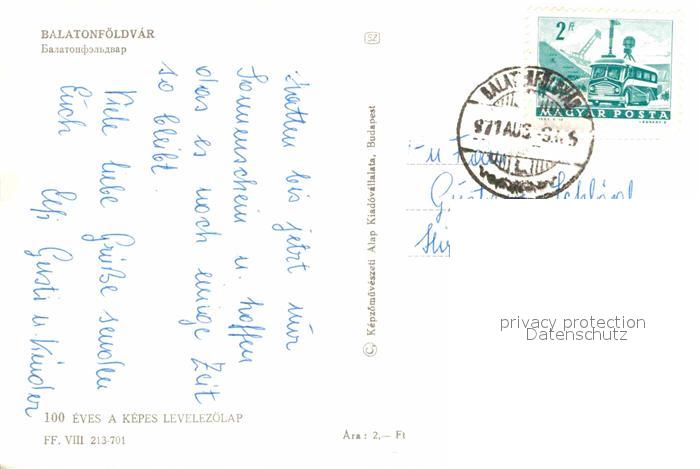 BALATONFÖLDVÁR
Балатонфэльдвар
SZ
hatten bis jetzt nur
Sonnenschein u. hoffen
das es noch einige Zeit
so bleibt.
Viele liebe Grüße senden
Euch
Gusti u. Kinder
100 ÉVES A KÉPES LEVELEZŐLAP
FF. VIII 213-701
© Képzőművészeti Alap Kiadóvállalata, Budapest
Ára: 2,— Ft
2 Ft
MAGYAR POSTA
971 AUG
privacy protection
Datenschutz